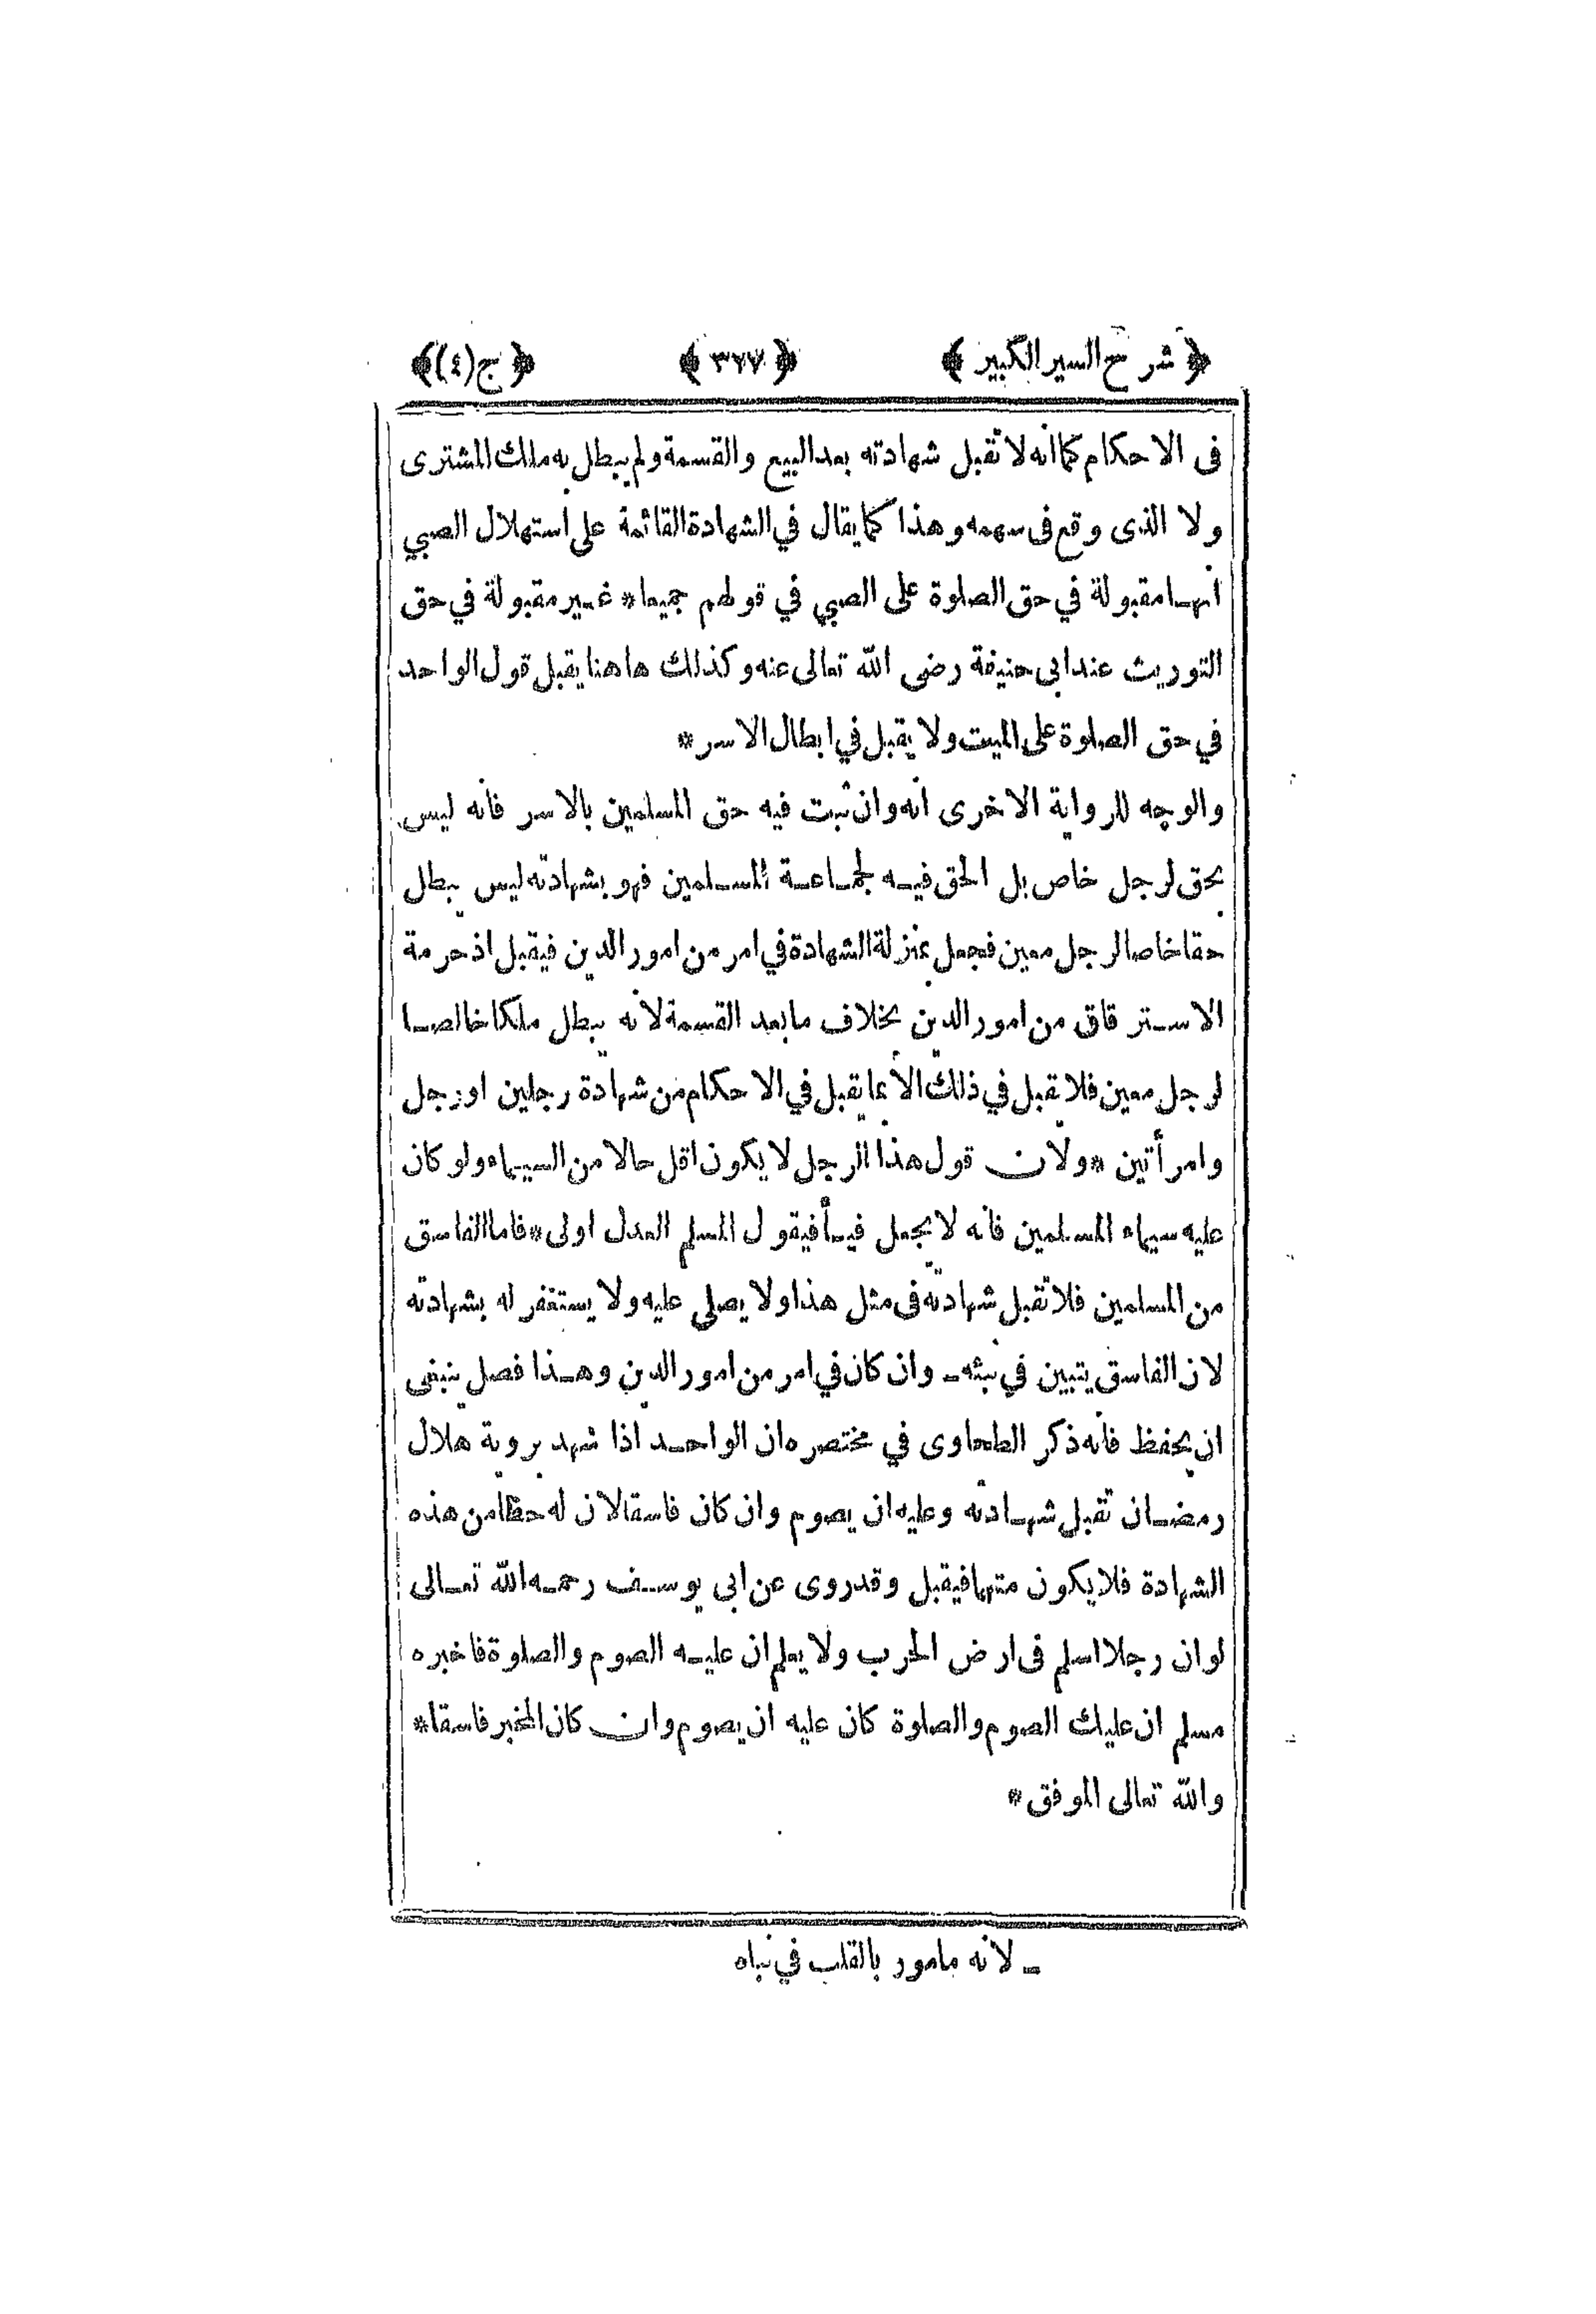 ﴿ شرح السير الكبير ﴾ ﴿ ٣٢٧ ﴾ ﴿ ج (٤) ﴾
فى الاحكام كما انه لا تقبل شهادته بعد البيع والقسمة ولم يبطل به ملك المشترى
ولا الذى وقع فى سهمه وهذا كما يقال في الشهادة القائمة على استهلال الصبي
انها مقبولة في حق الصلوة على الصبي في قولهم جميعا * غير مقبولة في حق
التوريث عند ابى حنيفة رضى الله تعالى عنه وكذلك هاهنا يقبل قول الواحد
في حق الصلوة على الميت ولا يقبل في ابطال الاسر *
والوجه للرواية الاخرى انه وان ثبت فيه حق المسلمين بالاسر فانه ليس
بحق لرجل خاص بل الحق فيه لجماعة المسلمين فهو بشهادته ليس يبطل
حقا خاصا لرجل معين فجعل بمنزلة الشهادة في امر من امور الدين فيقبل اذ حرمة
الاسترقاق من امور الدين بخلاف ما بعد القسمة لانه يبطل ملكا خالصا
لرجل معين فلا يقبل في ذلك الا بما يقبل في الاحكام من شهادة رجلين او رجل
وامرأتين * ولان قول هذا الرجل لا يكون اقل حالا من السيماء ولو كان
عليه سيماء المسلمين فانه لا يجعل فيأ فبقول المسلم العدل اولى * فاما الفاسق
من المسلمين فلا تقبل شهادته فى مثل هذا ولا يصلى عليه ولا يستغفر له بشهادته
لان الفاسق يتبين في نبئه ـ وان كان في امر من امور الدين وهذا فصل ينبغى
ان يحفظ فانه ذكر الطحاوى في مختصره ان الواحد اذا شهد بروية هلال
رمضان تقبل شهادته وعليه ان يصوم وان كان فاسقا لان له حظا من هذه
الشهادة فلا يكون متهما فيقبل وقد روى عن ابى يوسف رحمه الله تعالى
لو ان رجلا اسلم فى ارض الحرب ولا يعلم ان عليه الصوم والصلوة فاخبره
مسلم ان عليك الصوم والصلوة كان عليه ان يصوم وان كان المخبر فاسقا *
والله تعالى الموفق *
ـ لانه مامور بالقلب في نباه